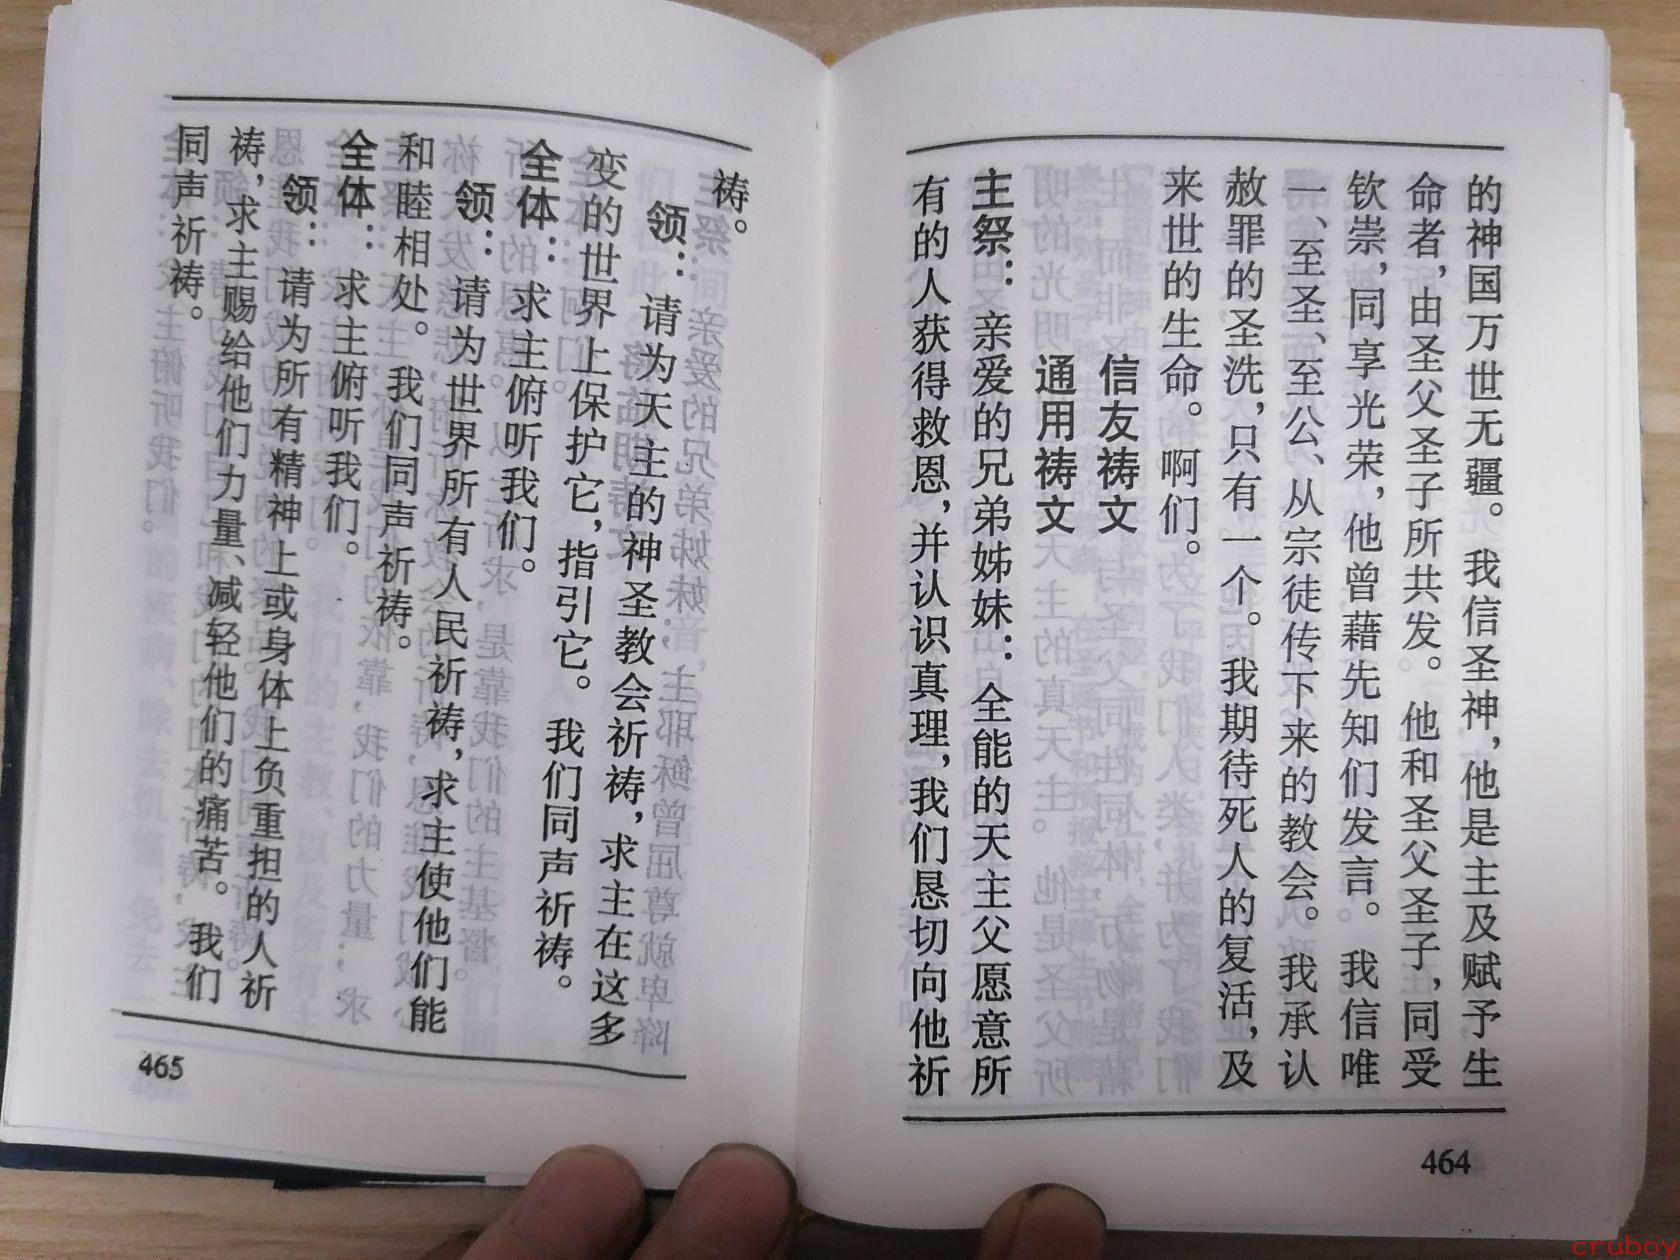 的神国万世无疆。我信圣神,他是主及赋予生
命者,由圣父圣子所共发。他和圣父圣子,同受
钦崇,同享光荣,他曾藉先知们发言。我信唯
一、至圣、至公、从宗徒传下来的教会。我承认
赦罪的圣洗,只有一个。我期待死人的复活,及
来世的生命。啊们。
信友祷文
通用祷文
主祭:亲爱的兄弟姊妹:全能的天主父愿意所
有的人获得救恩,并认识真理,我们恳切向他祈
464
祷。
领:请为天主的神圣教会祈祷,求主在这多
变的世界上保护它,指引它。我们同声祈祷。
全体:求主俯听我们。
领:请为世界所有人民祈祷,求主使他们能
和睦相处。我们同声祈祷。
全体:求主俯听我们。
领:请为所有精神上或身体上负重担的人祈
祷,求主赐给他们力量、减轻他们的痛苦。我们
同声祈祷。
465
cruboy